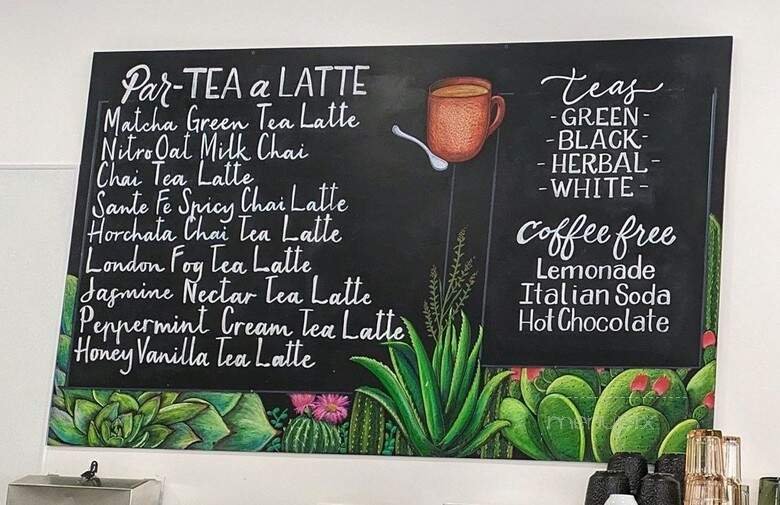 Par-TEA a LATTE
Matcha Green Tea Latte
Nitro Oat Milk Chai
Chai Tea Latte
Sante Fe Spicy Chai Latte
Horchata Chai Tea Latte
London Fog Tea Latte
Jasmine Nectar Tea Latte
Peppermint Cream Tea Latte
Honey Vanilla Tea Latte
teas
-GREEN-
-BLACK-
-HERBAL-
-WHITE-
coffee free
Lemonade
Italian Soda
Hot Chocolate
menulix